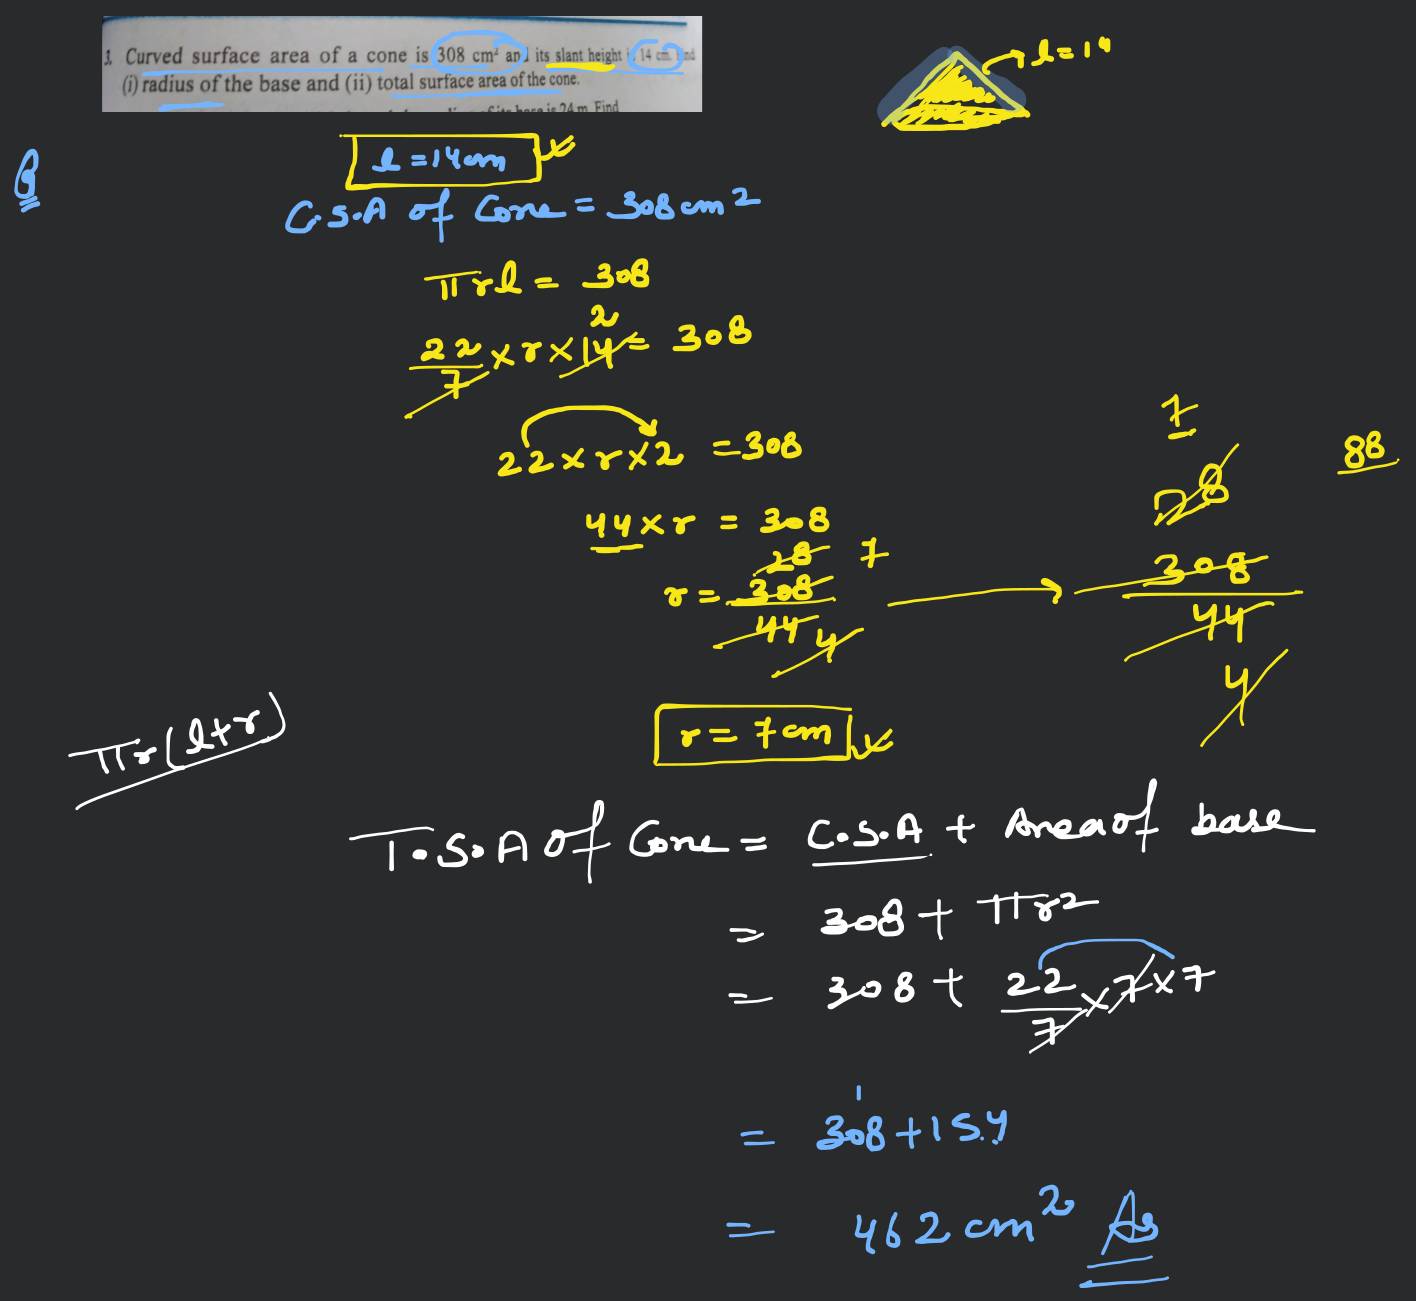 3. Curved surface area of a cone is 308 cm² and its slant height is 14 cm. Find
(i) radius of the base and (ii) total surface area of the cone.
base is 24 m. Find
l = 14
Q
l = 14 cm
C.S.A of Cone = 308 cm2
πrl = 308
2
22/7 × r × 14 = 308
22 × r × 2 = 308
44 × r = 308
28 7
r = 308/44
4
7
88
28
308/44
4
r = 7 cm
πr(l+r)
T.S.A of Cone = C.S.A + Area of base
= 308 + πr2
= 308 + 22/7 × 7 × 7
1
= 308 + 154
= 462 cm² As